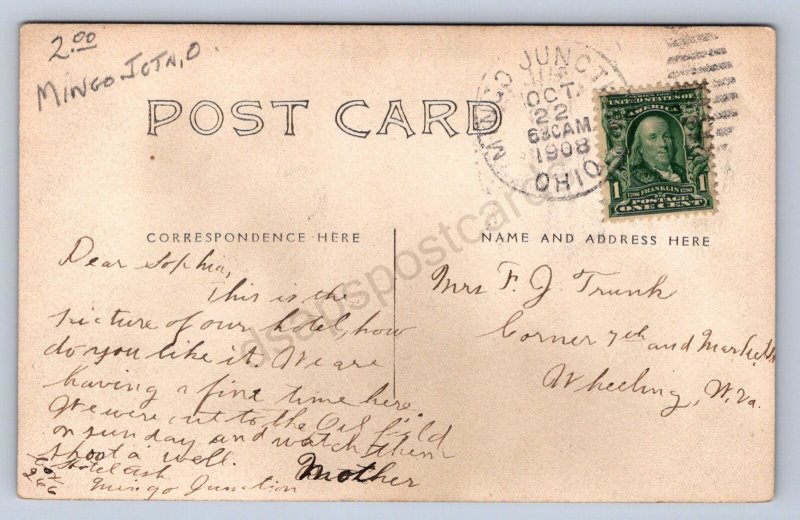 2.00
MINGO JCTN, O.
POST CARD
MINGO JUNCTION
OCT
22
630AM
1908
OHIO
UNITED STATES OF
AMERICA
1 1706 FRANKLIN 1790 1
POSTAGE
ONE CENT
CORRESPONDENCE HERE
NAME AND ADDRESS HERE
Dear Sophia,
This is the
picture of our hotel, how
do you like it. We are
having a fine time here.
We were out to the Oil field
on sunday and watch them
shoot a well.
Mother
Box
266
Hotel
Mingo Junction
Mrs F. J. Trunk
Corner 7th and Market St
Wheeling, W. Va.
dsapspostcards